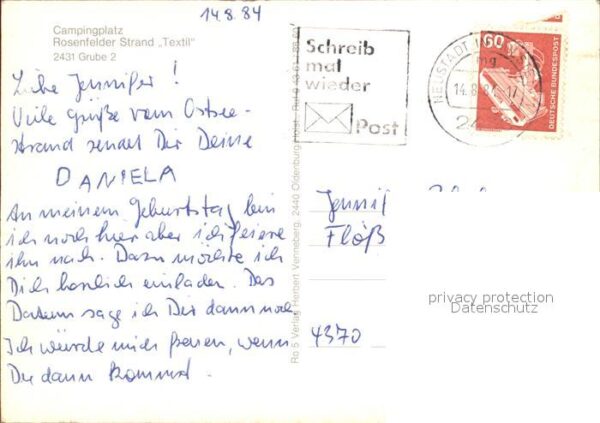 14.8.84
Campingplatz
Rosenfelder Strand „Textil"
2431 Grube 2
Liebe Jennifer!
Viele Grüße vom Ostsee-
strand sendet Dir Deine
DANIELA
An meinem Geburtstag bin
ich noch hier aber ich feiere
ihn nach. Dazu möchte ich
Dich herzlich einladen. Das
Datum sage ich Dir dann noch.
Ich würde mich freuen, wenn
Du dann kommst.
Ro 5 Verlag Herbert Vienneberg, 2440 Oldenburg/Holst.
Schreib
mal
wieder
Post
NEUSTADT
14.8.84
24
60
DEUTSCHE BUNDESPOST
Jennif
Floß
4370
privacy protection
Datenschutz